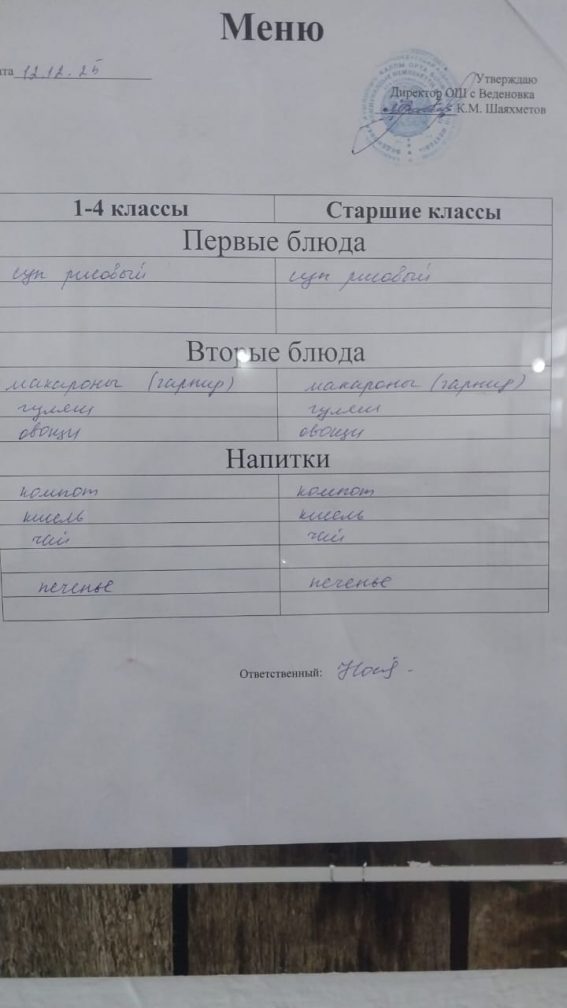 Меню
ата 12.12.25
Утверждаю
Директор ОШ с Веденовка
К.М. Шаяхметов
1-4 классы Старшие классы
Первые блюда
суп рисовый суп рисовый
Вторые блюда
макароны (гарнир) макароны (гарнир)
гуляш гуляш
овощи овощи
Напитки
компот компот
кисель кисель
чай чай
печенье печенье
Ответственный: